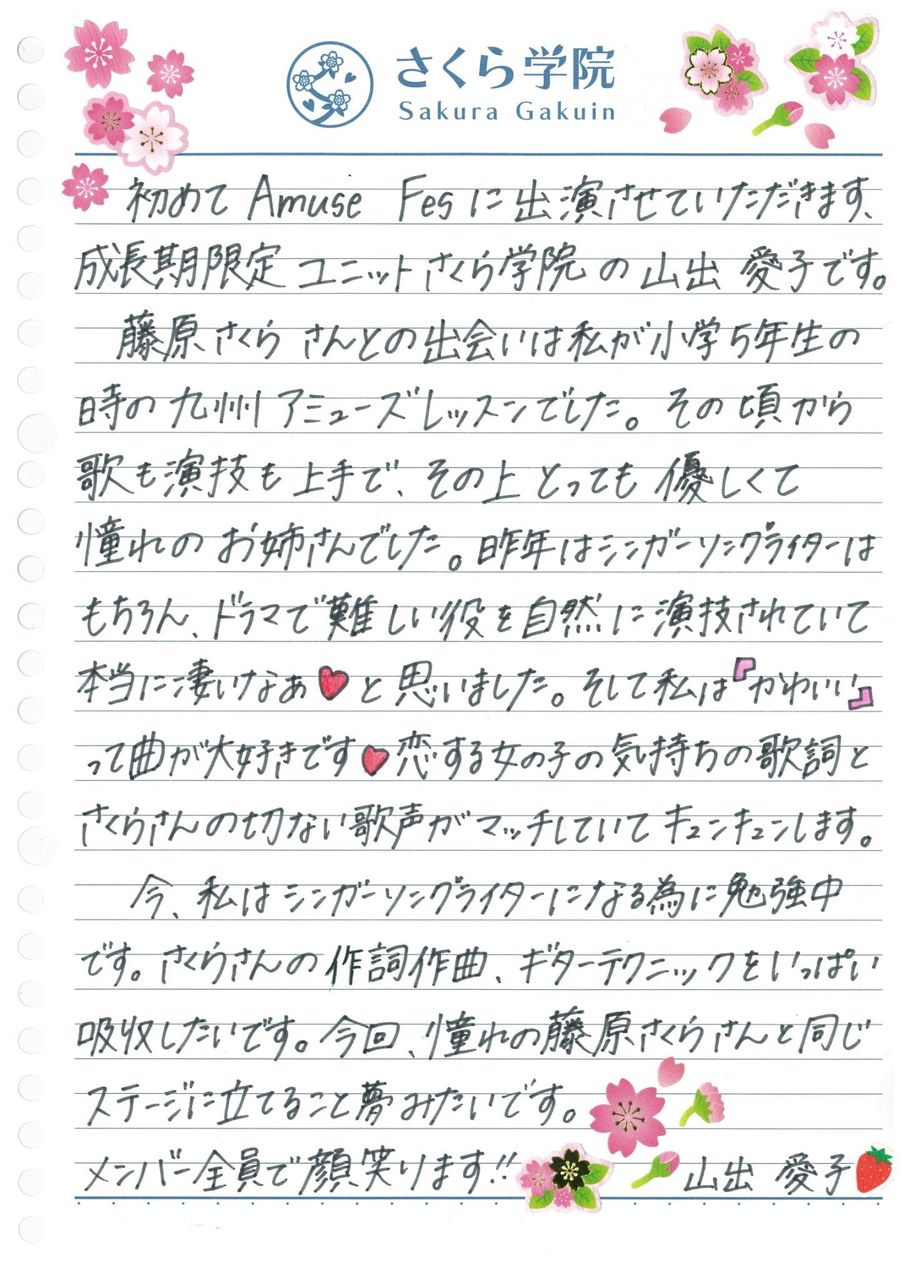 さくら学院
Sakura Gakuin
初めて Amuse Fes に出演させていただきます、
成長期限定 ユニット さくら学院 の 山出 愛子です。
藤原さくら さんとの出会いは私が小学5年生の
時の 九州 アミューズレッスンでした。その頃から
歌も演技も上手で、その上 とっても 優しくて
憧れの お姉さんでした。昨年はシンガーソングライターは
もちろん、ドラマで難しい役を自然に演技されていて
本当に凄いなぁ♥と思いました。そして私は『かわいい』
って曲が大好きです♥恋する女の子の気持ちの歌詞と
さくらさんの切ない歌声がマッチしていてキュンキュンします。
今、私はシンガーソングライターになる為に勉強中
です。さくらさんの作詞作曲、ギターテクニックをいっぱい
吸収したいです。今回、憧れの藤原さくらさんと同じ
ステージに立てること夢みたいです。
メンバー全員で顔笑ります!!
山出 愛子